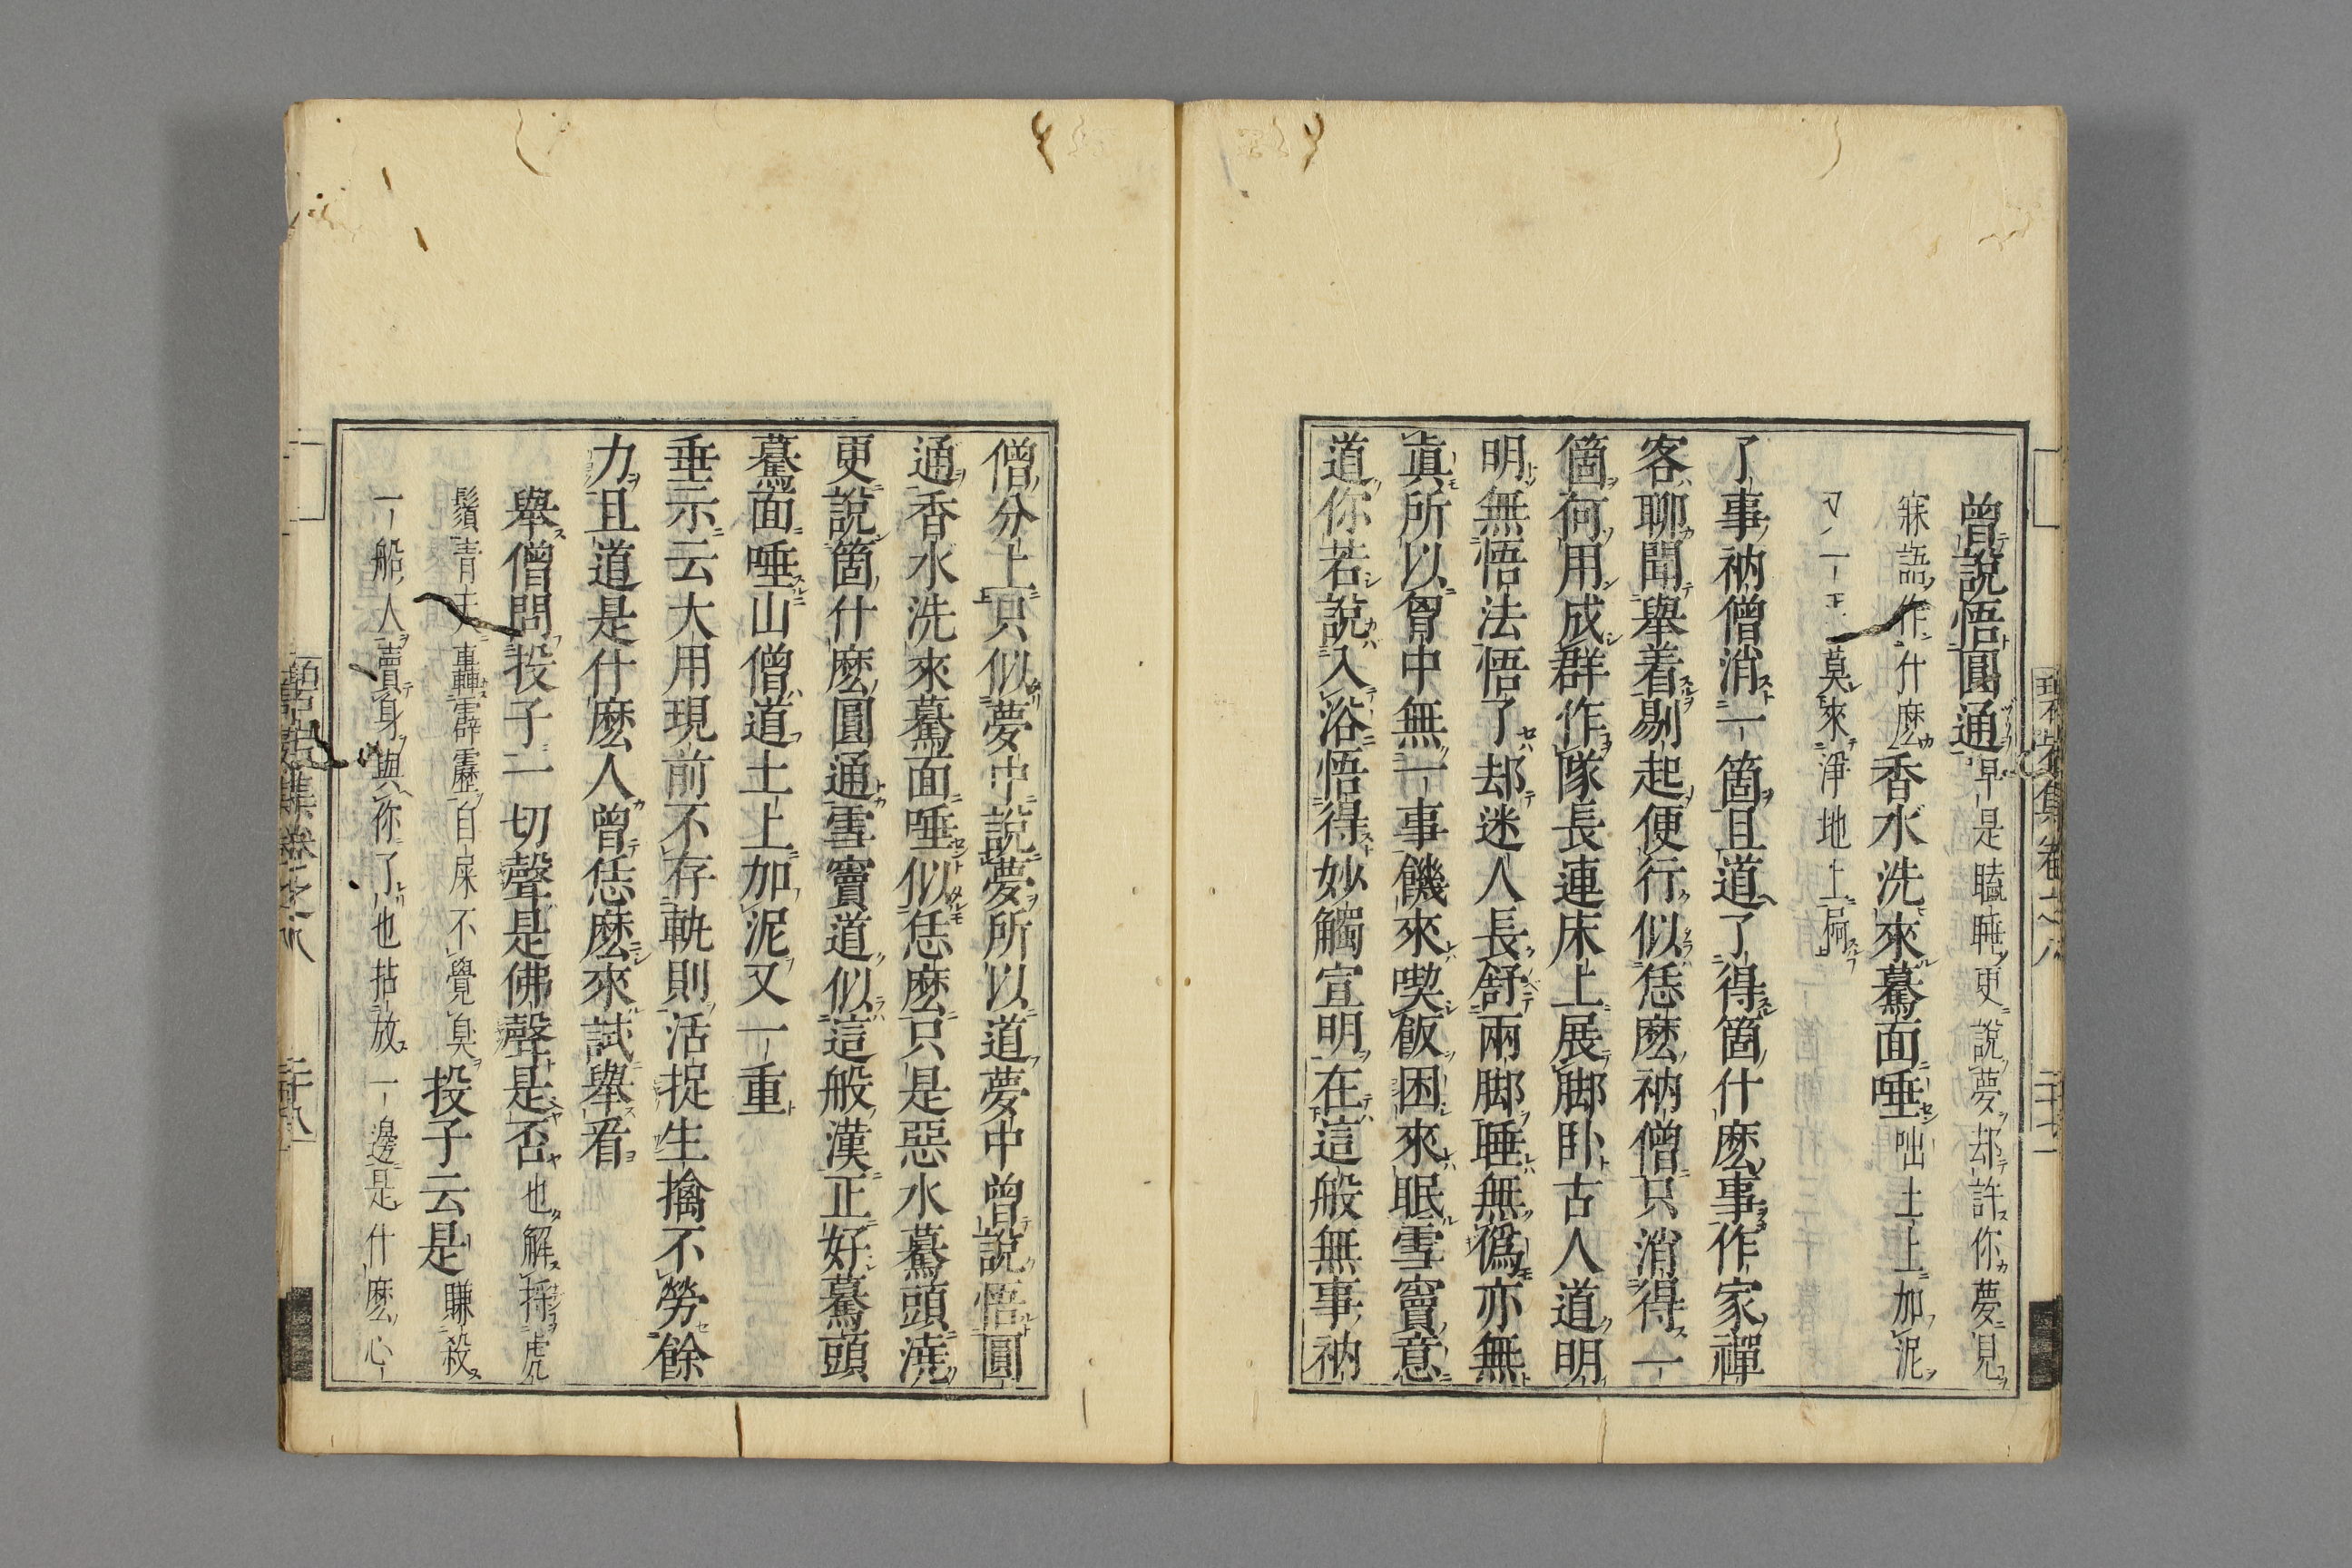 曾說悟圓通早是瞌睡更說夢却許你夢見
寐語作什麽香水洗來驀面唾咄土上加泥
又一重莫來淨地上屙
了事衲僧消一箇且道了得箇什麽事作家禪
客聊聞舉着剔起便行似恁麽衲僧只消得一
箇何用成群作隊長連床上展脚卧古人道明
明無悟法悟了却迷人長舒兩脚睡無僞亦無
眞所以胷中無一事饑來喫飯困來眠雪竇意
道你若說入浴悟得妙觸宣明在這般無事衲
僧分上只似夢中說夢所以道夢中曾說悟圓
通香水洗來驀面唾似恁麽只是惡水驀頭澆
更說箇什麽圓通雪竇道似這般漢正好驀頭
驀面唾山僧道土上加泥又一重
垂示云大用現前不存軌則活捉生擒不勞餘
力且道是什麽人曾恁麽來試舉看
舉僧問投子一切聲是佛聲是否也解捋虎
鬚青天轟霹靂自屎不覺臭投子云是賺殺
一船人賣身與你了也拈放一邊是什麽心
集卷之八